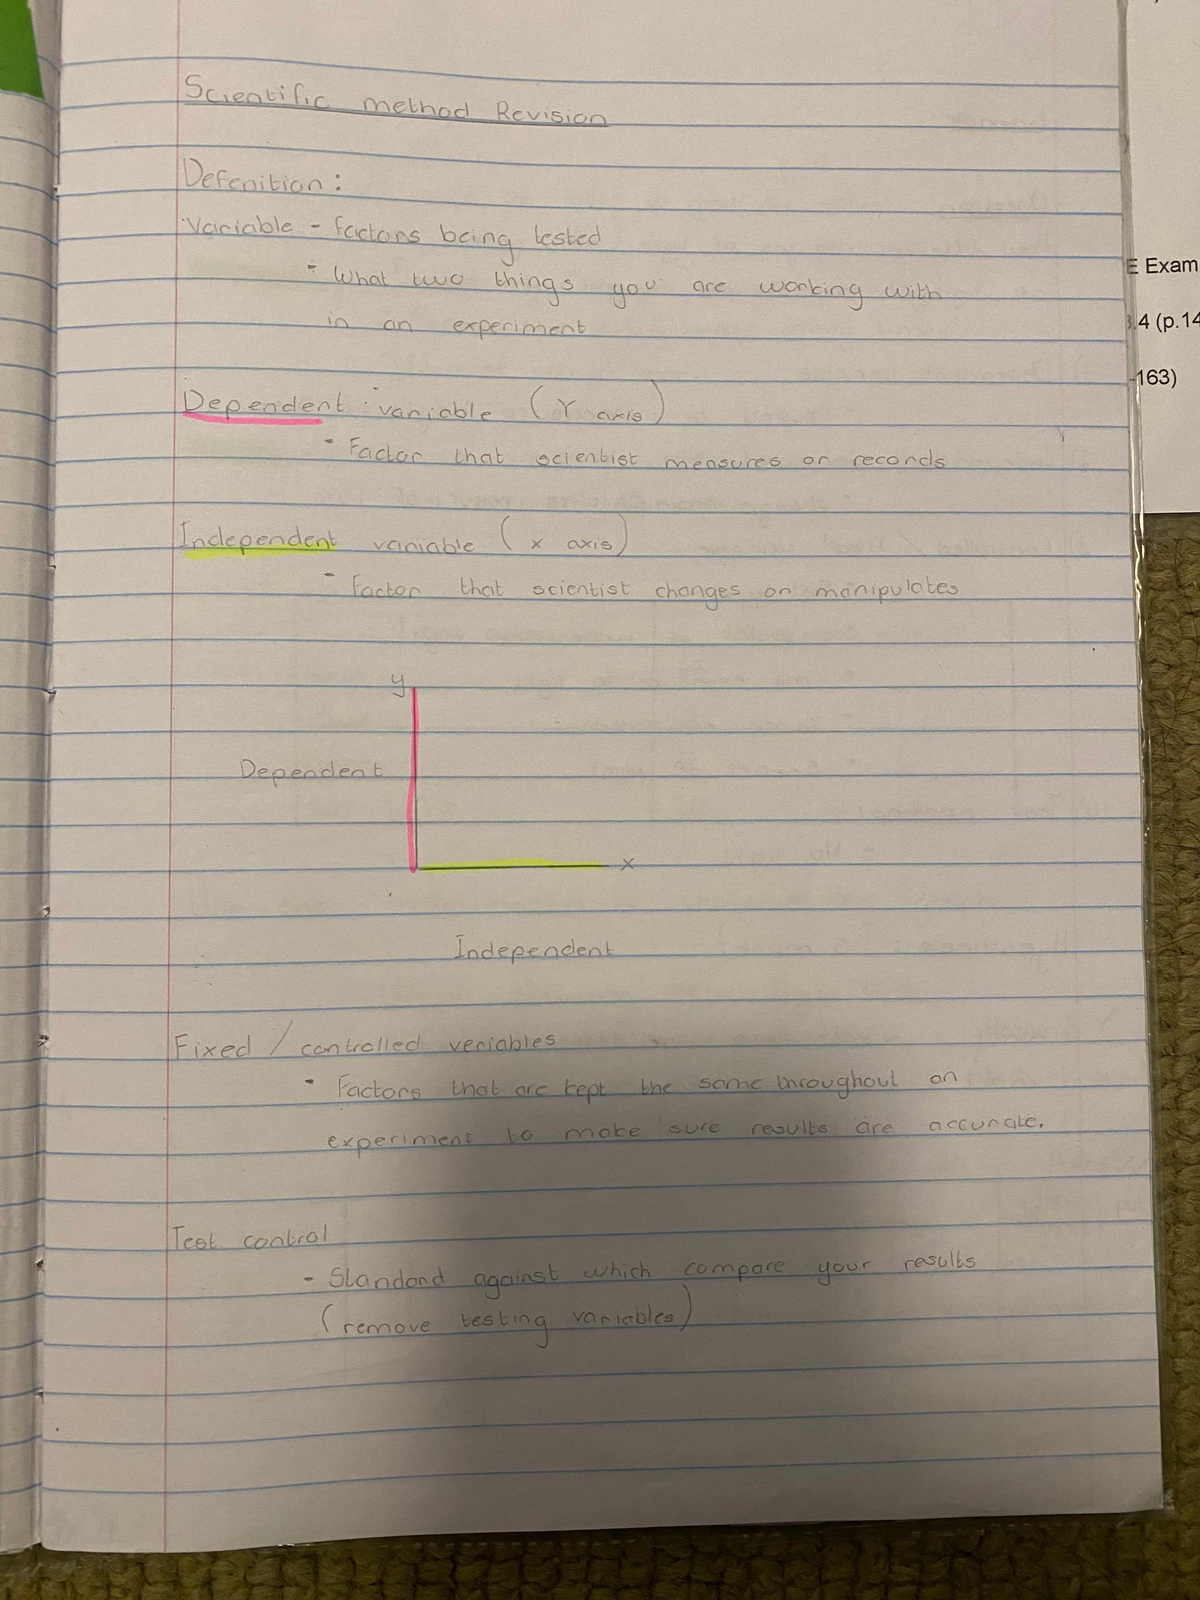 Scientific method Revision
Defenition:
Variable - factors being tested
- What two things you are working with
in an experiment
Dependent variable (Y axis)
- Factor that scientist measures or records
Independent variable (x axis)
- Factor that scientist changes or manipulates
y
Dependent
x
Independent
Fixed / controlled veriables
- Factors that are kept the same throughout an
experiment to make sure results are accurate.
Test control
- Standard against which compare your results
(remove testing variables)
E Exam
.4 (p.14
-163)